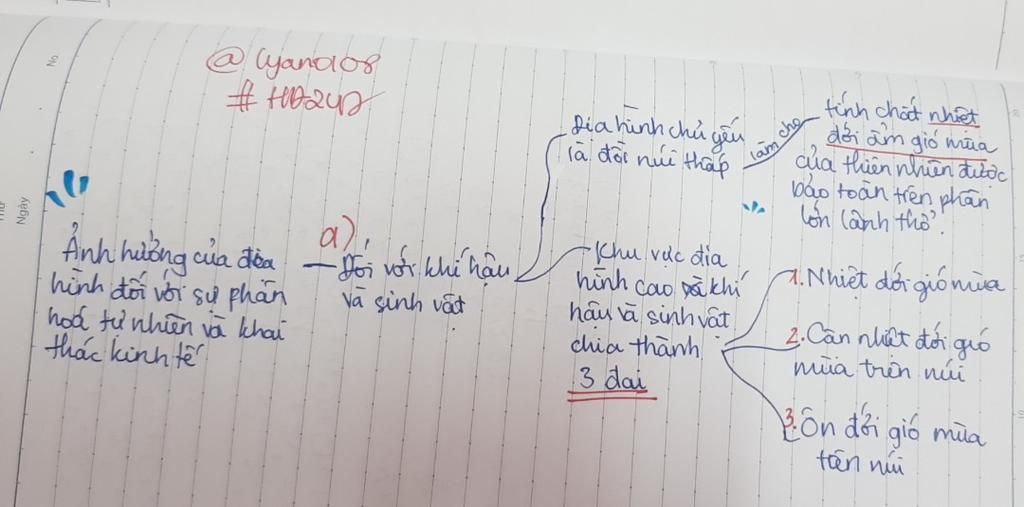 No
Ngày
Thứ
@ Cyano108
# HD247
Ảnh hưởng của địa
hình đối với sự phân
hoá tự nhiên và khai
thác kinh tế
a)
Đối với khí hậu
và sinh vật
Địa hình chủ yếu
là đồi núi thấp
làm cho
tính chất nhiệt
đới ẩm gió mùa
của thiên nhiên được
bảo toàn trên phần
lớn lãnh thổ.
Khu vực địa
hình cao khí
hậu và sinh vật
chia thành
3 đai
1. Nhiệt đới gió mùa
2. Cận nhiệt đới gió
mùa trên núi
3. Ôn đới gió mùa
trên núi